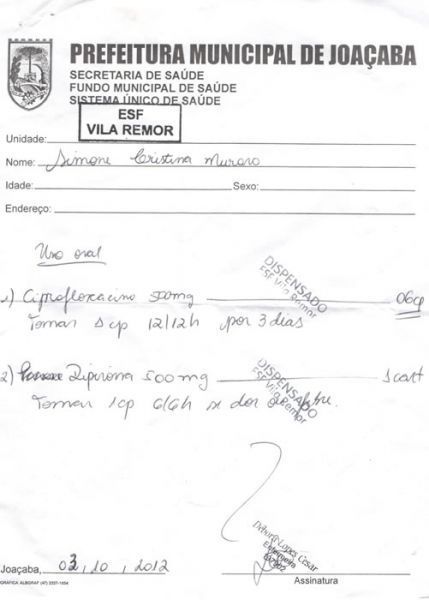 PREFEITURA MUNICIPAL DE JOAÇABA
SECRETARIA DE SAÚDE
FUNDO MUNICIPAL DE SAÚDE
SISTEMA ÚNICO DE SAÚDE
ESF
VILA REMOR
Unidade:
Nome: Simone Cristina Muraro
Idade: Sexo:
Endereço:
Uso oral
1) Ciprofloxacino 500mg 06cp
DISPENSADO
ESF Vila Remor
Tomar 1 cp 12/12h por 3 dias
2) Dipirona 500mg 1cart
DISPENSADO
ESF Vila Remor
Tomar 1cp 6/6h se dor ou febre.
Débora Lopes Cesar
Enfermeira
Joaçaba, 03, 10, 2012
Assinatura